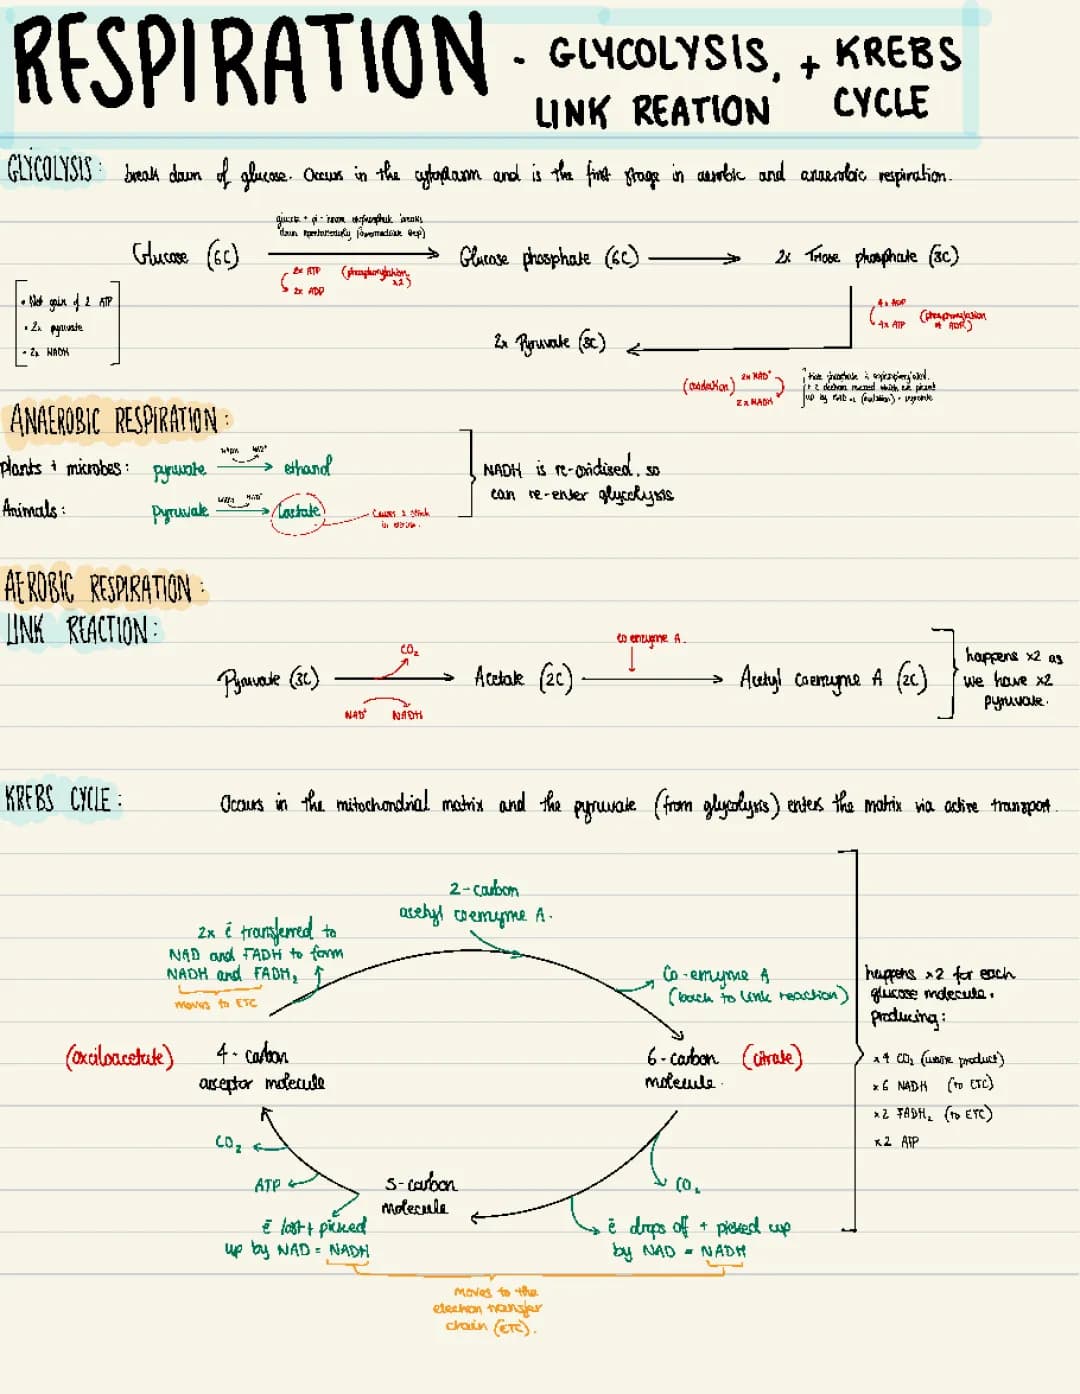 RESPIRATION - GLYCOLYSIS, + KREBS
LINK REATION CYCLE
GLYCOLYSIS: break down of glucose. Occurs in the cytoplasm and is the first stage in aerobic and anaerobic respiration.
glucose + pi - breaks
down spontaneously (intermediate step)
Glucose (6C)
Glucose phosphate (6C)
2x Triose phosphate (3C)
2x ATP
2x ADP
(phosphorylation
x2)
• Net gain of 2 ATP
• 2x pyruvate
• 2x NADH
4x ADP
4x ATP
(phosphorylation
of ADP)
2x Pyruvate (3C)
(oxidation)
2x NAD+
2x NADH
Triose phosphate is
+ 2 electron removed which are picked
up by (oxidation) - pyruvate
ANAEROBIC RESPIRATION:
Plants + microbes: pyruvate
NADH NAD+
ethanol
Animals: Pyruvate
NADH NAD+
Lactate
Causes a
in
NADH is re-oxidised. so
can re-enter glycolysis
AEROBIC RESPIRATION:
LINK REACTION:
Pyruvate (3C)
CO2
NAD+ NADH
Acetate (2C)
Co enzyme A.
Acetyl Coenzyme A (2C)
happens x2 as
we have x2
pyruvate.
KREBS CYCLE: Occurs in the mitochondrial matrix and the pyruvate (from glycolysis) enters the matrix via active transport.
2-carbon
acetyl coenzyme A.
2x ē transferred to
NAD and FADH to form
NADH and FADH2
moves to ETC
Co-enzyme A
(back to link reaction)
(oxciloacetate)
4-carbon
acceptor molecule
6-carbon
molecule.
(citrate)
CO2
ATP
5-carbon
molecule
CO2
ē lost + picked
up by NAD = NADH
ē drops off + picked up
by NAD = NADH
moves to the
electron transfer
chain (ETC).
happens x2 for each
glucose molecule.
producing:
x4 CO2 (waste product)
x6 NADH (to ETC)
x2 FADH2 (to ETC)
x2 ATP